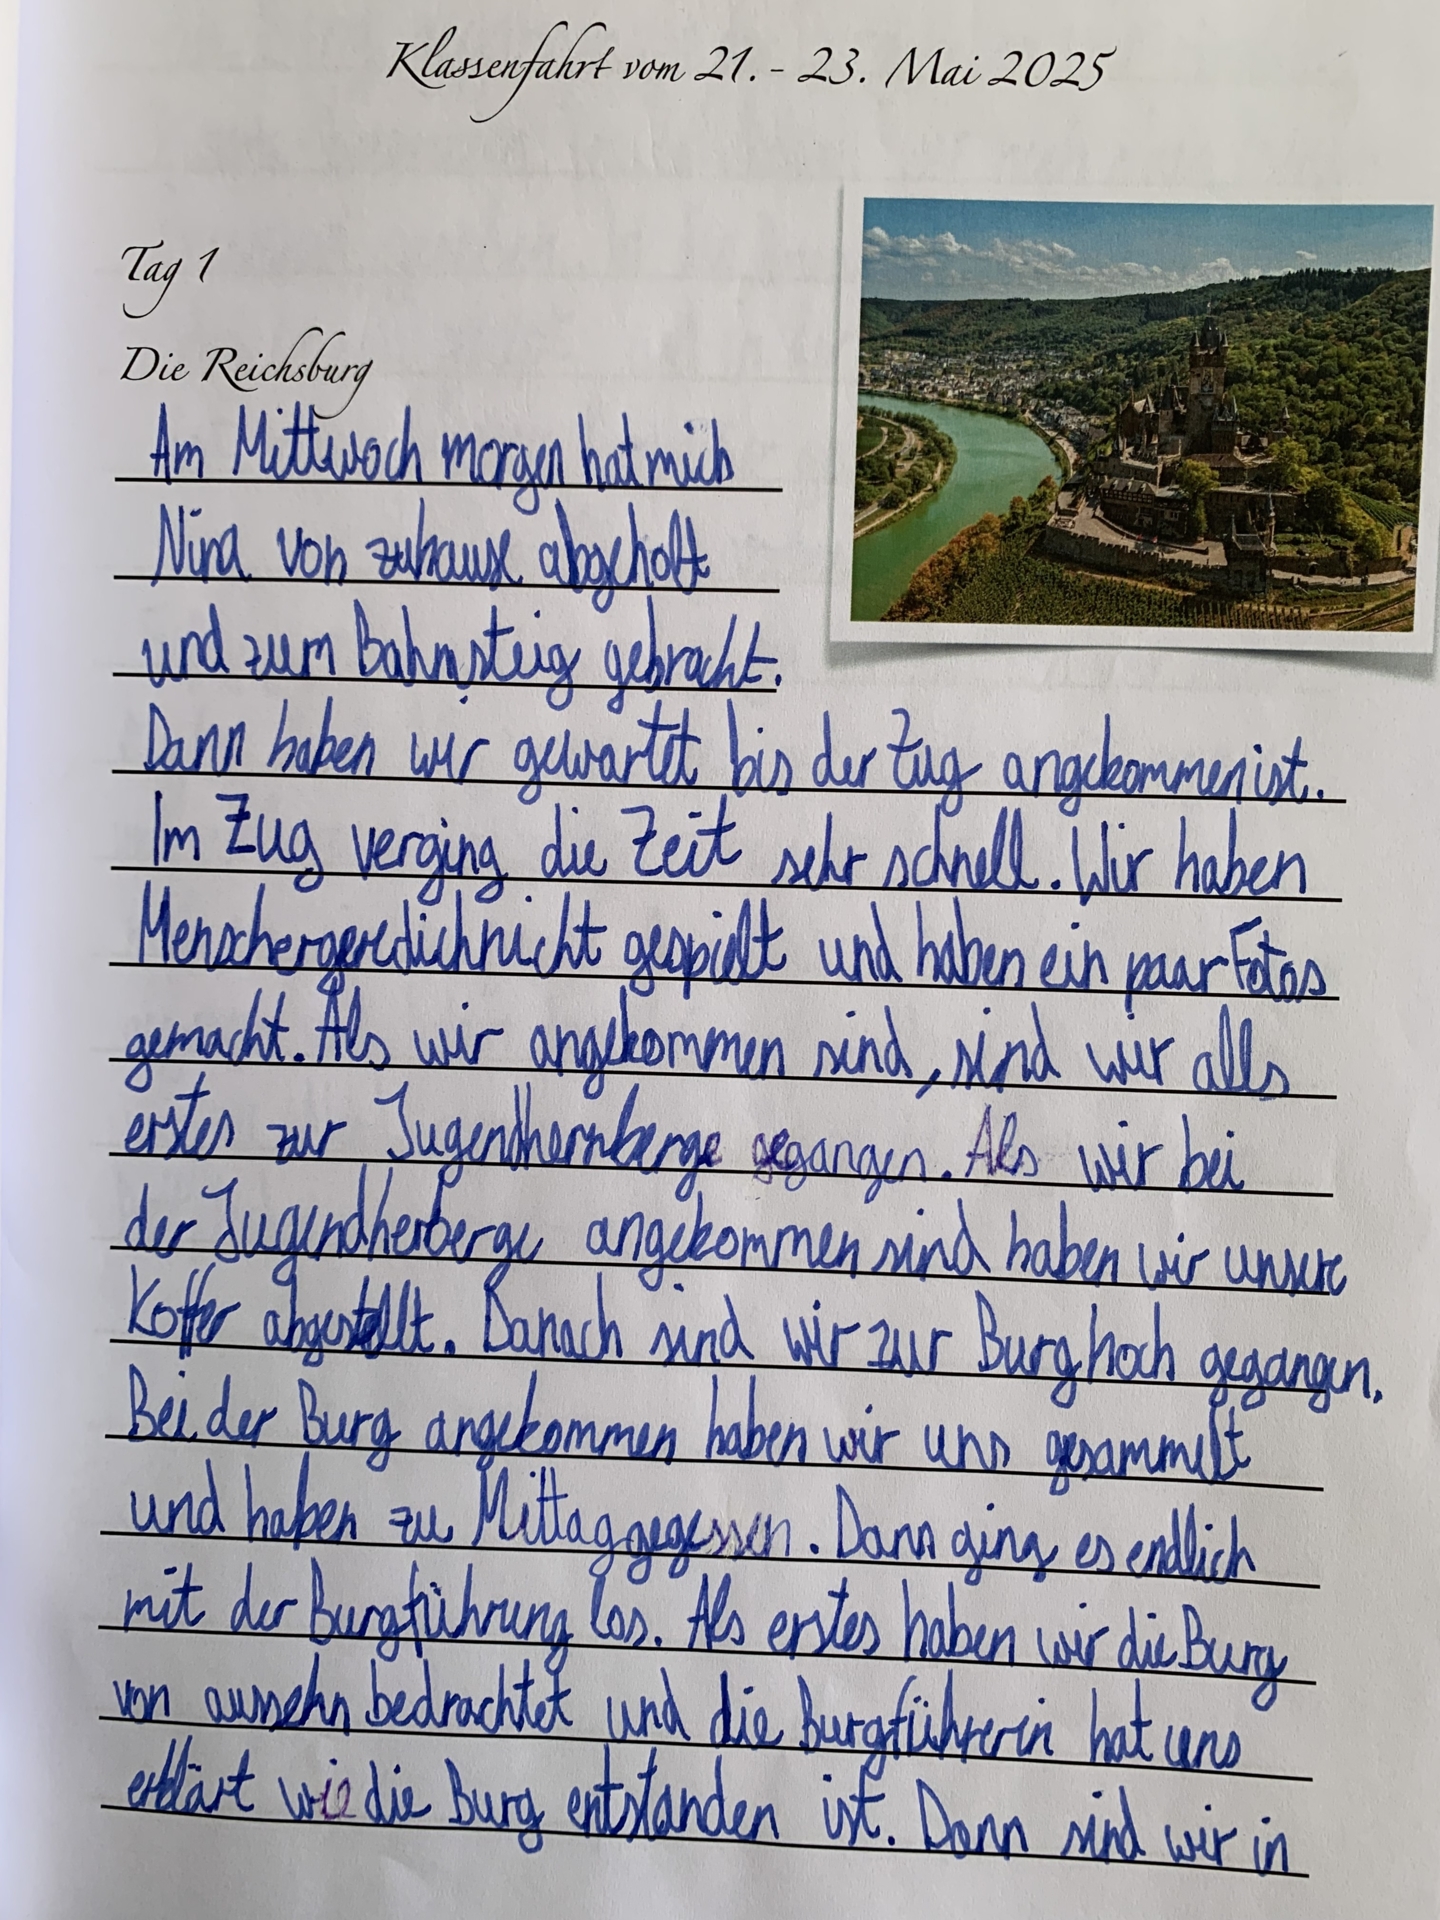 Klassenfahrt vom 21. - 23. Mai 2025
Tag 1
Die Reichsburg
Am Mittwoch morgen hat mich
Nina von zuhause abgeholt
und zum Bahnsteig gebracht.
Dann haben wir gewartet bis der Zug angekommen ist.
Im Zug verging die Zeit sehr schnell. Wir haben
Menschergeredichnicht gespielt und haben ein paar Fotos
gemacht. Als wir angekommen sind, sind wir alls
erstes zur Jugendhernberge gegangen. Als wir bei
der Jugendherberge angekommen sind haben wir unsere
Koffer abgestellt. Danach sind wir zur Burg hoch gegangen.
Bei der Burg angekommen haben wir uns gesammelt
und haben zu Mittag gegessen. Dann ging es endlich
mit der Burgführung los. Als erstes haben wir die Burg
von aussehn bedrachtet und die Burgführerin hat uns
erklärt wie die Burg entstanden ist. Dann sind wir in